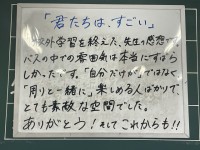 「君たちは、すごい」
校外学習を終えた、先生の感想です。
バスの中での雰囲気は本当にすばら
しかったです。「自分だけが」ではなく
「周りと一緒に」楽しめる人ばかりで、
とても素敵な空間でした。
ありがとう！そしてこれからも!!